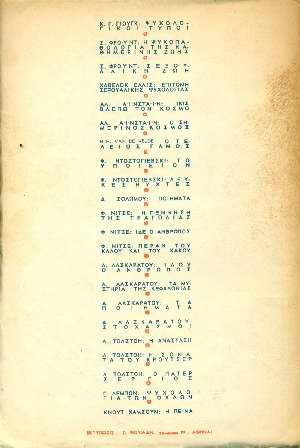 Κ. Γ. ΓΙΟΥΓΚ: ΨΥΧΟΛΟ-
ΓΙΚΟΙ ΤΥΠΟΙ
Σ. ΦΡΟΥΝΤ: Η ΨΥΧΟΠΑ-
ΘΟΛΟΓΙΑ ΤΗΣ ΚΑ-
ΘΗΜΕΡΙΝΗΣ ΖΩΗΣ
Σ. ΦΡΟΥΝΤ: ΣΕΞΟΥ-
ΑΛΙΚΗ ΖΩΗ
ΧΑΒΕΛΟΚ ΕΛΛΙΣ: ΕΠΙΤΟΜΗ
ΣΕΞΟΥΑΛΙΚΗΣ ΨΥΧΟΛΟΓΙΑΣ
ΑΛ. ΑΪΝΣΤΑΪΝ: ΠΩΣ
ΒΛΕΠΩ ΤΟΝ ΚΟΣΜΟ
ΑΛ. ΑΪΝΣΤΑΪΝ: Ο ΣΗ-
ΜΕΡΙΝΟΣ ΚΟΣΜΟΣ
VAN DE VELDE: Ο ΤΕ-
ΛΕΙΟΣ ΓΑΜΟΣ
Φ. ΝΤΟΣΤΟΓΙΕΒΣΚΙ: ΤΟ
ΥΠΟΓΕΙΟΝ
Φ. ΝΤΟΣΤΟΓΙΕΒΣΚΙ: ΛΕΥ-
ΚΕΣ ΝΥΧΤΕΣ
Δ. ΣΟΛΩΜΟΥ: ΠΟΙΗΜΑΤΑ
Φ. ΝΙΤΣΕ: Η ΓΕΝΝΗΣΗ
ΤΗΣ ΤΡΑΓΩΔΙΑΣ
Φ. ΝΙΤΣΕ: ΙΔΕ Ο ΑΝΘΡΩΠΟΣ
Φ. ΝΙΤΣΕ: ΠΕΡΑΝ ΤΟΥ
ΚΑΛΟΥ ΚΑΙ ΤΟΥ ΚΑΚΟΥ
Α. ΛΑΣΚΑΡΑΤΟΥ: ΙΔΟΥ
Ο ΑΝΘΡΩΠΟΣ
Α. ΛΑΣΚΑΡΑΤΟΥ: ΤΑ ΜΥ-
ΣΤΗΡΙΑ ΤΗΣ ΚΕΦΑΛΟΝΙΑΣ
Α. ΛΑΣΚΑΡΑΤΟΥ: ΤΑ
ΠΟΙΗΜΑΤΑ
Α. ΛΑΣΚΑΡΑΤΟΥ:
ΣΤΟΧΑΣΜΟΙ
Λ. ΤΟΛΣΤΟΗ: Η ΑΝΑΣΤΑΣΗ
Λ. ΤΟΛΣΤΟΗ: Η ΣΟΝΑ-
ΤΑ ΤΟΥ ΚΡΟΥΤΣΕΡ
Λ. ΤΟΛΣΤΟΗ: Ο ΠΑΤΕΡ
ΣΕΡΓΙΟΣ
Γ. ΛΕΜΠΟΝ: ΨΥΧΟΛΟ-
ΓΙΑ ΤΩΝ ΟΧΛΩΝ
ΚΝΟΥΤ ΧΑΜΣΟΥΝ: Η ΠΕΙΝΑ
ΑΘΗΝΑΙ